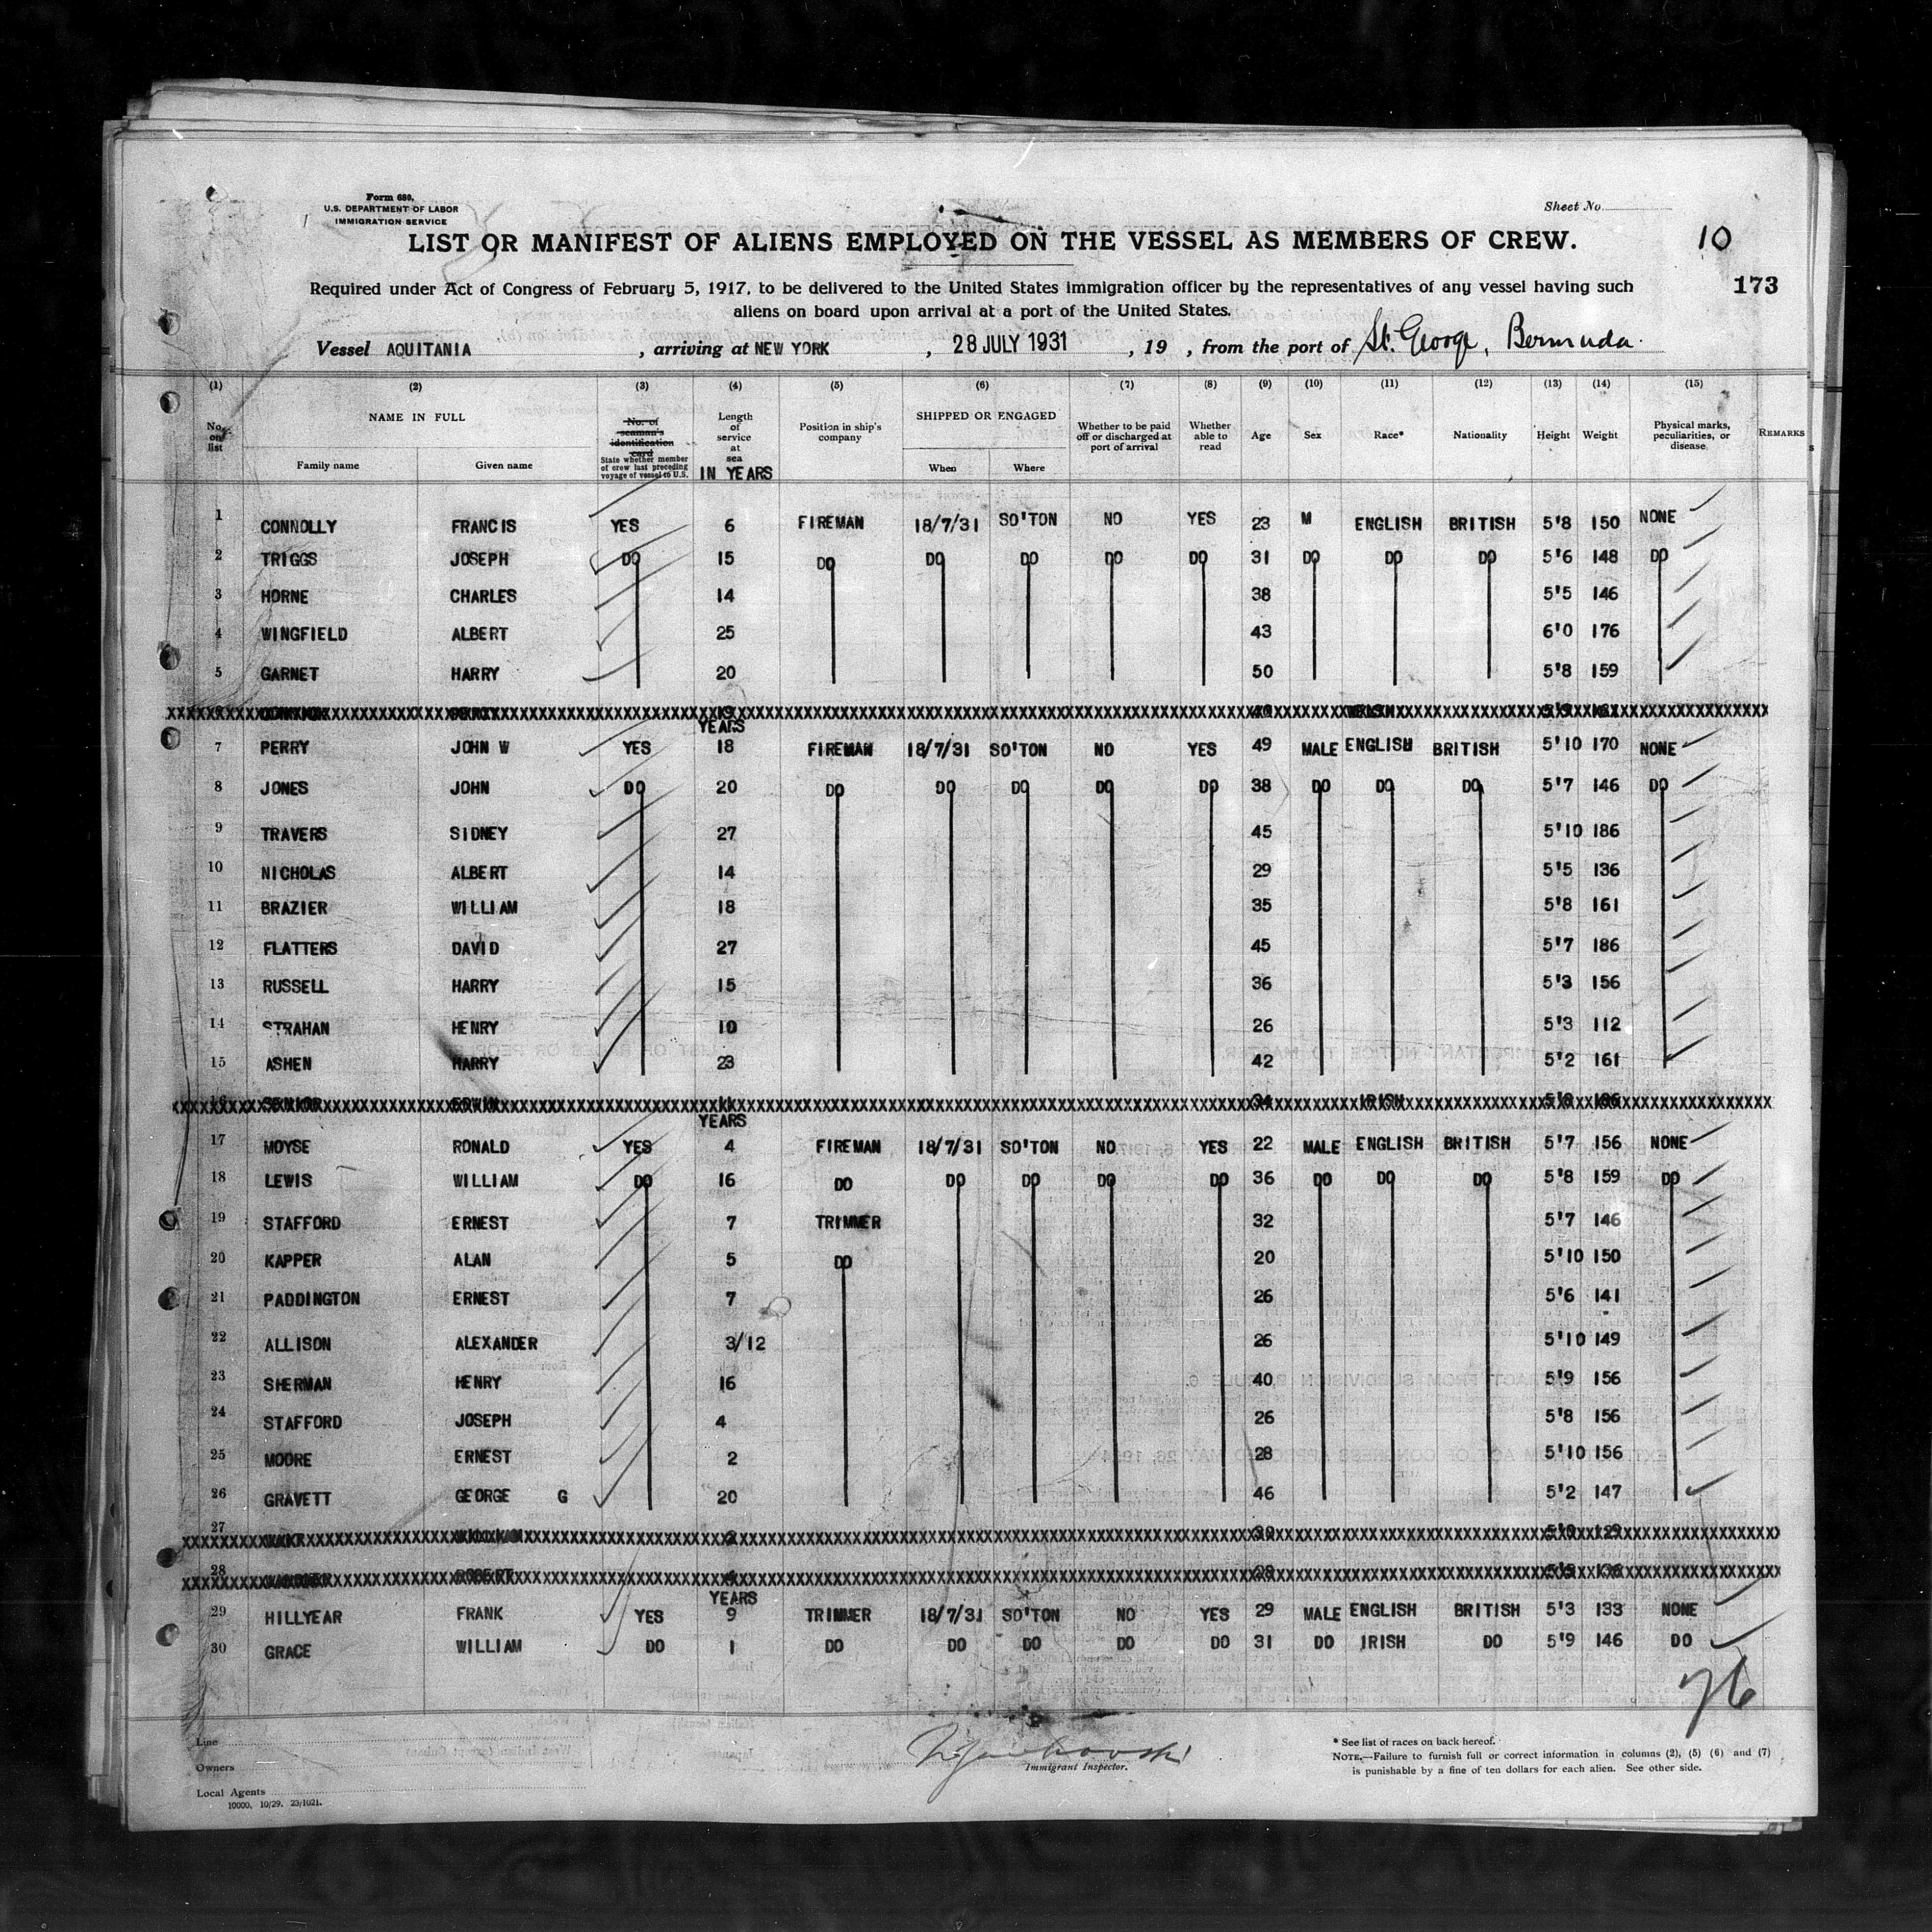 Form 680,
U.S. DEPARTMENT OF LABOR
IMMIGRATION SERVICE
Sheet No.
LIST OR MANIFEST OF ALIENS EMPLOYED ON THE VESSEL AS MEMBERS OF CREW.
10
173
Required under Act of Congress of February 5, 1917, to be delivered to the United States immigration officer by the representatives of any vessel having such
aliens on board upon arrival at a port of the United States.
Vessel AQUITANIA , arriving at NEW YORK , 28 JULY 1931 , 19 , from the port of St. George, Bermuda.
(1) (2) (3) (4) (5) (6) (7) (8) (9) (10) (11) (12) (13) (14) (15)
No. on list NAME IN FULL Family name Given name No. of seaman's identification card State whether member of crew last preceding voyage of vessel to U.S. Length of service at sea IN YEARS Position in ship's company SHIPPED OR ENGAGED When Where Whether to be paid off or discharged at port of arrival Whether able to read Age Sex Race* Nationality Height Weight Physical marks, peculiarities, or disease REMARKS
1 CONNOLLY FRANCIS YES 6 FIREMAN 18/7/31 SO'TON NO YES 23 M ENGLISH BRITISH 5'8 150 NONE
2 TRIGGS JOSEPH DO 15 DO DO DO DO DO 31 DO DO DO 5'6 148 DO
3 HORNE CHARLES 14 38 5'5 146
4 WINGFIELD ALBERT 25 43 6'0 176
5 GARNET HARRY 20 50 5'8 159
6
YEARS
7 PERRY JOHN W YES 18 FIREMAN 18/7/31 SO'TON NO YES 49 MALE ENGLISH BRITISH 5'10 170 NONE
8 JONES JOHN DO 20 DO DO DO DO DO 38 DO DO DO 5'7 146 DO
9 TRAVERS SIDNEY 27 45 5'10 186
10 NICHOLAS ALBERT 14 29 5'5 136
11 BRAZIER WILLIAM 18 35 5'8 161
12 FLATTERS DAVID 27 45 5'7 186
13 RUSSELL HARRY 15 36 5'3 156
14 STRAHAN HENRY 10 26 5'3 112
15 ASHEN HARRY 23 42 5'2 161
16 SENIOR EDWIN 11 34 IRISH
YEARS
17 MOYSE RONALD YES 4 FIREMAN 18/7/31 SO'TON NO YES 22 MALE ENGLISH BRITISH 5'7 156 NONE
18 LEWIS WILLIAM DO 16 DO DO DO DO DO 36 DO DO DO 5'8 159 DO
19 STAFFORD ERNEST 7 TRIMMER 32 5'7 146
20 KAPPER ALAN 5 DO 20 5'10 150
21 PADDINGTON ERNEST 7 26 5'6 141
22 ALLISON ALEXANDER 3/12 26 5'10 149
23 SHERMAN HENRY 16 40 5'9 156
24 STAFFORD JOSEPH 4 26 5'8 156
25 MOORE ERNEST 2 28 5'10 156
26 GRAVETT GEORGE G 20 46 5'2 147
27 WILLIAM 2
28 ROBERT 4
YEARS
29 HILLYEAR FRANK YES 9 TRIMMER 18/7/31 SO'TON NO YES 29 MALE ENGLISH BRITISH 5'3 133 NONE
30 GRACE WILLIAM DO 1 DO DO DO DO DO 31 DO IRISH DO 5'9 146 DO
76
Line
Owners
Local Agents
10000, 10/29. 23/1021.
Immigrant Inspector.
* See list of races on back hereof.
NOTE.—Failure to furnish full or correct information in columns (2), (5) (6) and (7)
is punishable by a fine of ten dollars for each alien. See other side.